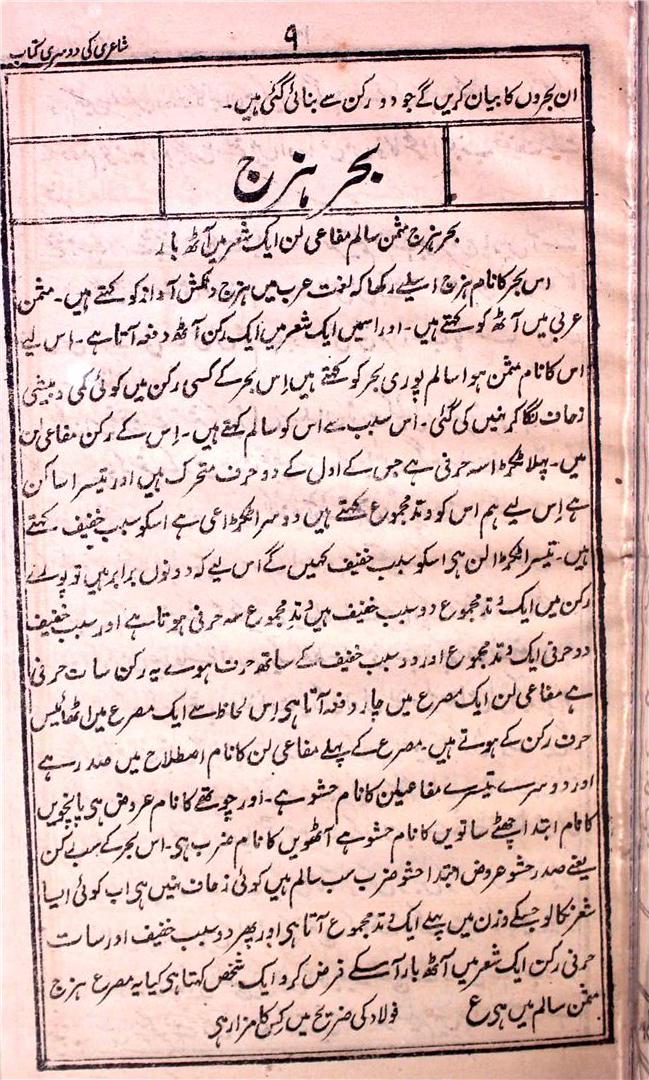 ۹
شاعری کی دوسری کتاب
ان بحروں کا بیان کریں گے جو دو رکن سے بنائی گئی ہیں۔
بحر ہزج
بحر ہزج مثمن سالم مفاعی لن ایک شعر میں آٹھ بار
اس بحر کا نام ہزج اسلیے رکھا کہ لغت عرب میں ہزج دلکش آواز کو کہتے ہیں۔ مثمن
عربی میں آٹھ کو کہتے ہیں۔ اور اسمیں ایک شعر میں ایک رکن آٹھ دفعہ آتا ہے۔ اس لیے
اس کا نام مثمن ہوا سالم پوری بحر کو کہتے ہیں اِس بحر کے کسی رکن میں کوئی کمی و بیشی
زحاف لگا کر نہیں کی گئی۔ اس سبب سے اس کو سالم کہتے ہیں۔ اِس کے رکن مفاعی لن
میں۔ پہلا ٹکڑا سہ حرفی ہے جس کے اول کے دو حرف متحرک ہیں اور تیسرا ساکن
ہے اِس لیے ہم اس کو وتد مجموع کہتے ہیں دوسرا ٹکڑا عی ہے اسکو سبب خفیف۔ کہتے
ہیں۔ تیسرا ٹکڑا لن ہی اسکو سبب خفیف کہیں گے اس لیے کہ دونوں برابر ہیں تو پولے
رکن میں ایک وتد مجموع دو سبب خفیف ہیں وتدِ مجموع سہ حرفی ہوتا ہے اور سبب خفیف
دو حرفی ایک وتد مجموع اور دو سبب خفیف کے ساتھ حرف ہوے یہ رکن سات حرفی
ہے مفاعی لن ایک مصرع میں چار دفعہ آتا ہی اِس لحاظ سے ایک مصرع میں اٹھائیس
حرف رکن کے ہوتے ہیں۔ مصرع کے پہلے مفاعی لن کا نام اصطلاح میں صدر ہے
اور دوسرے تیسرے مفاعیلن کا نام حشو ہے۔ اور چوتھے کا نام عروض ہی پانچویں
کا نام ابتدا چھٹے ساتویں کا نام حشو ہے آٹھویں کا نام ضرب ہی۔ اس بحر کے سب رکن
یعنے صدر حشو عروض ابتدا حشو ضرب سب سالم ہیں کوئی زحاف نہیں ہی اب کوئی ایسا
شعر نکالو جسکے وزن میں پہلے ایک وتد مجموع آتا ہی اور پھر دو سبب خفیف اور سات
حرفی رکن ایک شعر میں آٹھ بار آسکے فرض کرو ایک شخص کہتا ہی کیا یہ مصرع ہزج
مثمن سالم میں ہی ع فولاد کی ضریح میں کس کا مزار ہی